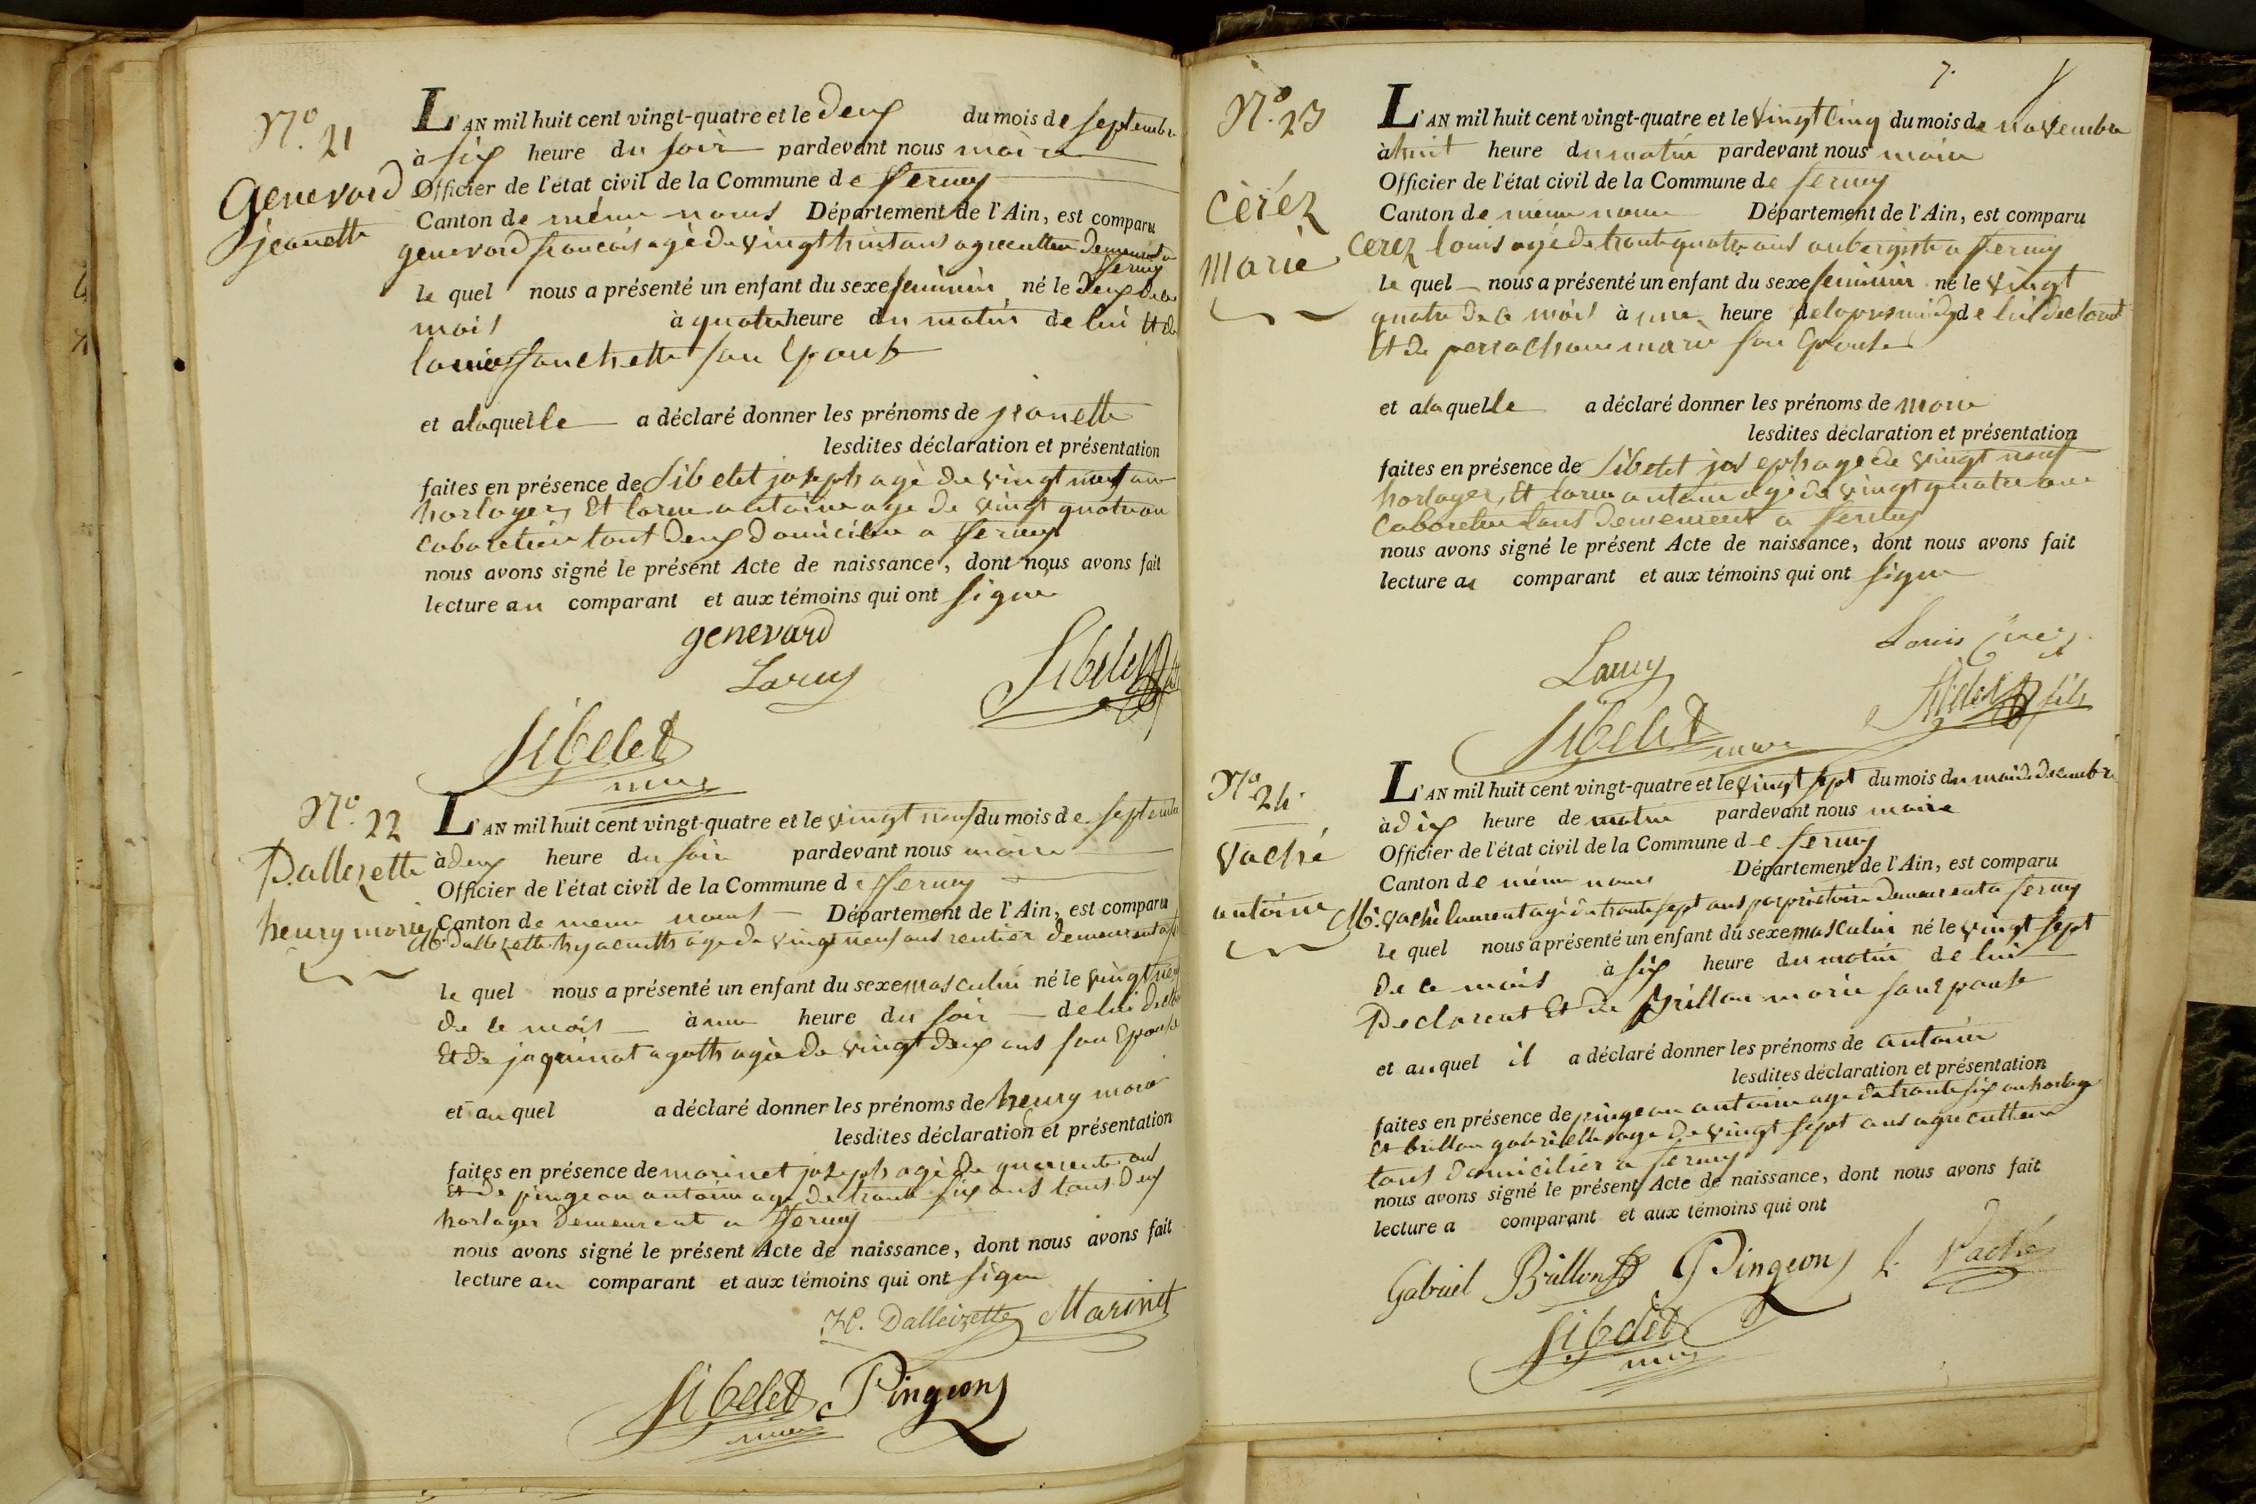 N.º 21
Genevard
jeanette
L'AN mil huit cent vingt-quatre et le deux du mois de septembre
à six heure du soir pardevant nous maire
Officier de l'état civil de la Commune de ferney
Canton de même noms Département de l'Ain, est comparu
genevard francois agè de vingt huit ans agriculteur demeurant a
ferney
le quel nous a présenté un enfant du sexe feminin né le deux de ce
mois à quatre heure du matin de lui Et de
fanchette son Epouse
et a laquelle a déclaré donner les prénoms de jeanette
lesdites déclaration et présentation
faites en présence de Sibelet joseph agè de vingt neuf an
horloger, Et larue antoine age de vingt quatre an
cabaretier tout deux domicilie a ferney
nous avons signé le présent Acte de naissance, dont nous avons fait
lecture au comparant et aux témoins qui ont signe
genevard
Larue
Sibelet
Sibelet
maire
Nº. 22
Dallezette
henry marie
L'AN mil huit cent vingt-quatre et le vingt neuf du mois de septembre
à deux heure du soir pardevant nous maire
Officier de l'état civil de la Commune de ferney
Canton de meme noms Département de l'Ain, est comparu
Mr. Dallezette hyacinthe age de vingt neuf ans rentier demeurant a
le quel nous a présenté un enfant du sexe masculin né le vingt neuf
de ce mois à une heure du soir de lui
Et de jaquinot agath agèe de vingt deux ans son Epouse
et au quel a déclaré donner les prénoms de henry marie
lesdites déclaration et présentation
faites en présence de marinet joseph agè de quarente ans
Et de pingeon antoine age de trante six ans tous deux
horloger demeurent a ferney
nous avons signé le présent Acte de naissance, dont nous avons fait
lecture au comparant et aux témoins qui ont signe
H. Dalleizette Marinet
Sibelet Pingeon
maire
7.
N.º 23
cèréz
Marie
L'AN mil huit cent vingt-quatre et le vingt cinq du mois de novembre
à huit heure du matin pardevant nous maire
Officier de l'état civil de la Commune de ferney
Canton de même nom Département de l'Ain, est comparu
Cerez louis agé de trante quatre ans aubergiste a ferney
le quel nous a présenté un enfant du sexe feminin né le vingt
quatre de ce mois à une heure de lui declarent
Et de marie son Epouse
et a laquelle a déclaré donner les prénoms de marie
lesdites déclaration et présentation
faites en présence de Sibelet joseph age de vingt neuf
horloger, Et larue antoine agè de vingt quatre ans
cabaretier tous demeurent a ferney
nous avons signé le présent Acte de naissance, dont nous avons fait
lecture au comparant et aux témoins qui ont signe
Louis Cerez
Larue
Sibelet fils
Sibelet
maire
Nº 24.
Vaché
antoine
L'AN mil huit cent vingt-quatre et le vingt sept du mois du mois de decembre
à dix heure de matin pardevant nous maire
Officier de l'état civil de la Commune de ferney
Canton de même noms Département de l'Ain, est comparu
Mr. vaché laurent agè de trante sept ans propriétaire demeurent a ferney
le quel nous a présenté un enfant du sexe masculin né le vingt sept
de ce mois à six heure du matin de lui
Declarent Et de Brillon marie son Epouse
et auquel il a déclaré donner les prénoms de antoine
lesdites déclaration et présentation
faites en présence de pingeon antoine age de trante six an horloge
Et brillon gabrielle age de vingt sept ans agriculteur
tous domicilier a ferney
nous avons signé le présent Acte de naissance, dont nous avons fait
lecture a comparant et aux témoins qui ont
Gabriel Brillon Pingeon L. Vaché
Sibelet
maire